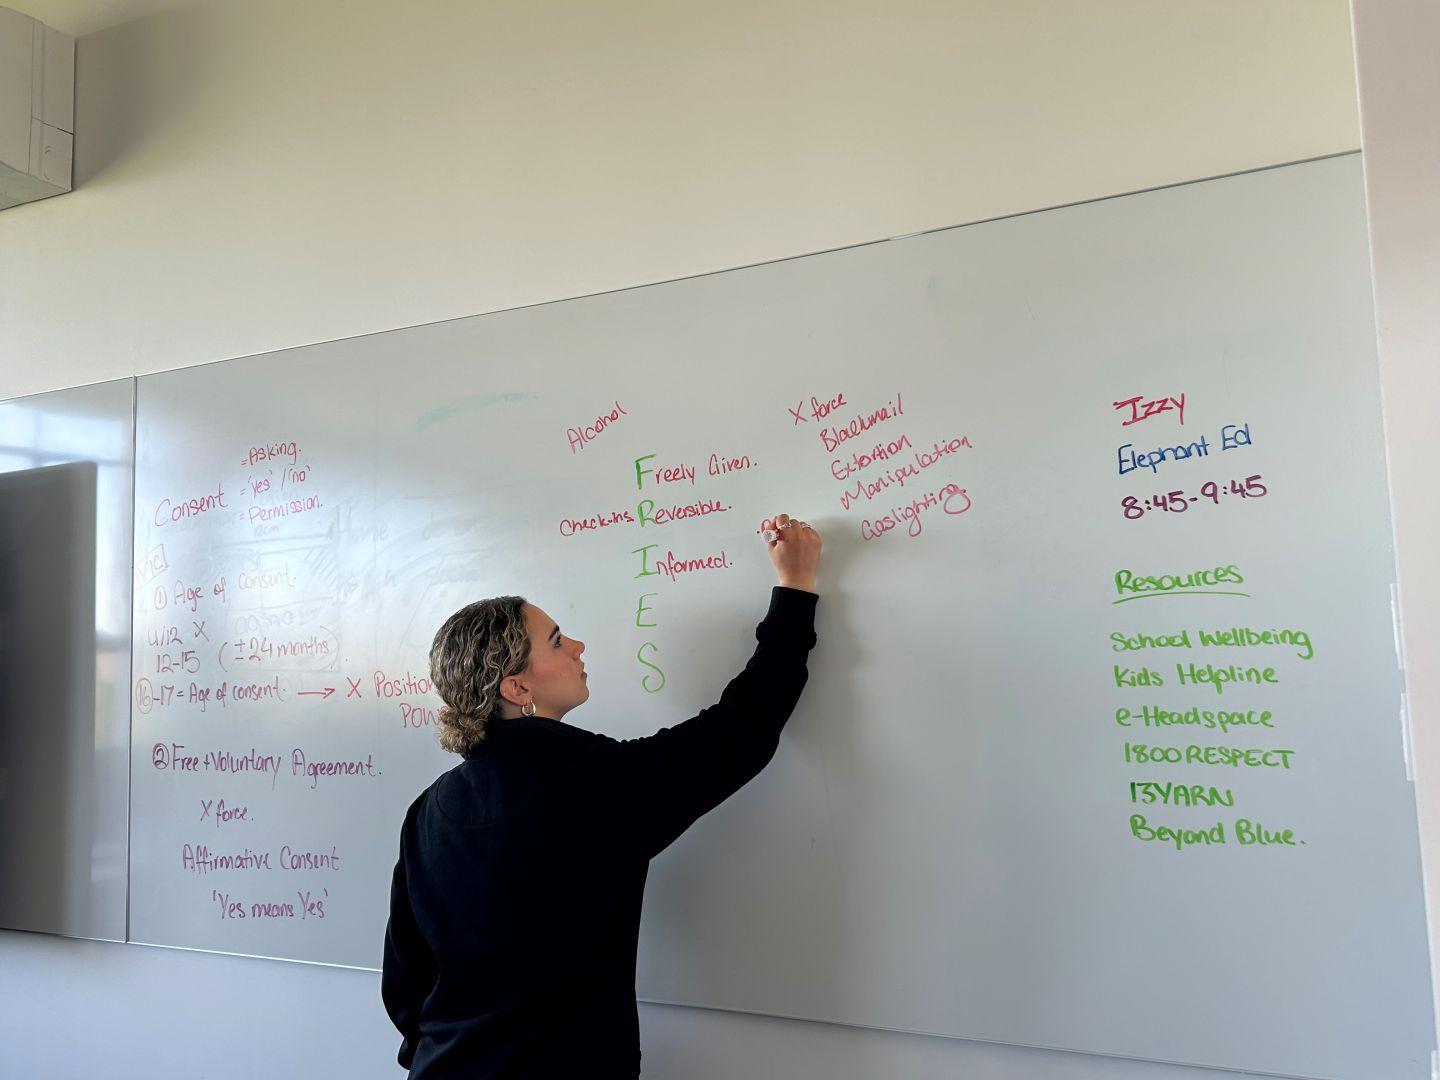 Consent
= Asking.
= 'yes' / 'no'
= Permission.
Vic
① Age of consent.
U/12 X
12-15 (±24 months).
16-17 = Age of consent. → X Position
POW
② Free + Voluntary Agreement.
X force.
Affirmative Consent
'Yes means Yes'
Alcohol
Freely Given.
Check-ins. Reversible.
Informed.
E
S
X force
Blackmail
Extortion
Manipulation
Gaslighting
Izzy
Elephant Ed
8:45-9:45
Resources
School Wellbeing
Kids Helpline
e-Headspace
1800RESPECT
13YARN
Beyond Blue.